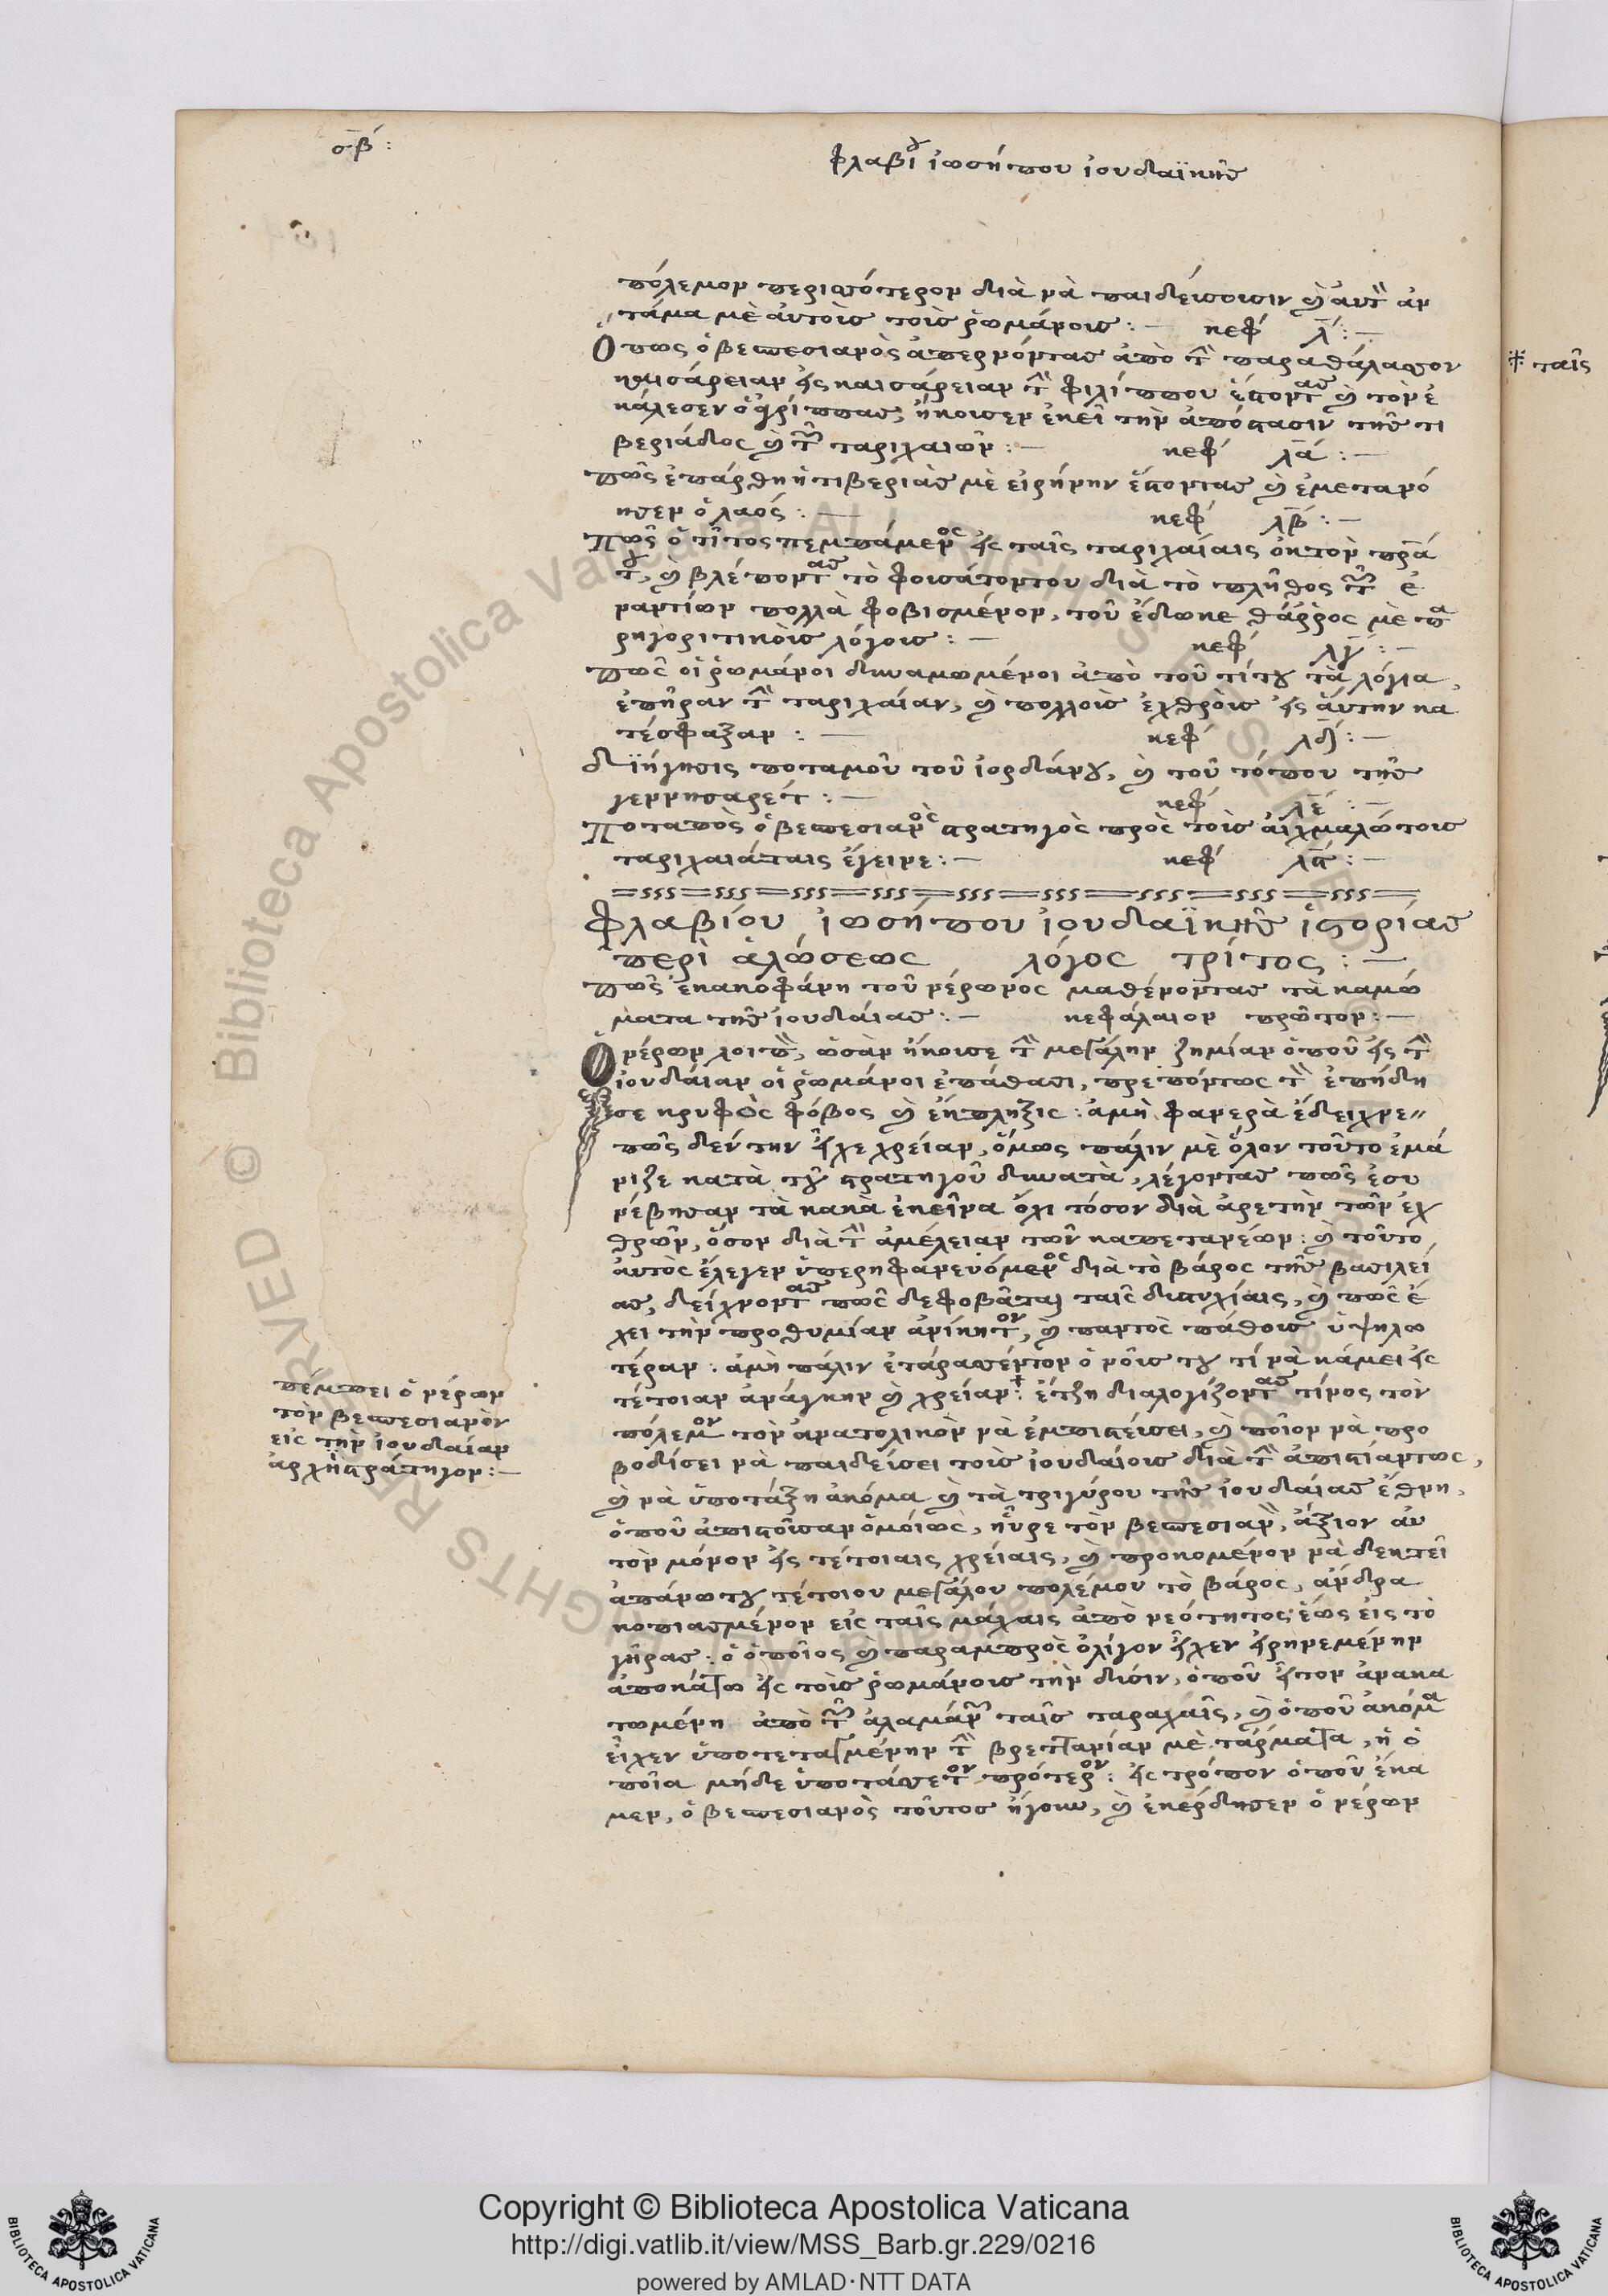 σβ:
φλαβίου ἰωσήπου ἰουδαϊκῆς
πόλεμον περισσότερον διὰ νὰ παιδεύσουσιν καὶ αὐτὴν ἀν
τάμα μὲ ἀυτοὺς τοὺς ῥωμάνους :— κεφ λ :—
Ὅπως ὁ βεσπεσιανὸς ἀπερνόντας ἀπὸ τὴν παραθάλασσον
καισάρειαν εἰς καισάρειαν τὴν φιλίππου
κάλεσεν ὁ ἀγρίππας, ἤκουσεν ἐκεῖ τὴν ἀπόστασιν τῆς τι
βεριάδος καὶ τῶν ταριχαιῶν :— κεφ λα :—
πῶς ἐπάρθη ἡ τιβεριὰς μὲ εἰρήνην ἔστοντας καὶ ἐμετανό
ησεν ὁ λαός :— κεφ λβ :—
πῶς ὁ τῖτος πεμπάμενος εἰς ταῖς ταριχαίαις
καὶ βλέποντας τὸ φουσάτοντου διὰ τὸ πλῆθος τῶν ἐ
ναντίων πολλὰ φοβισμένον, τοῦ ἔδωκε θάρρος μὲ πα
ρηγορητικοὺς λόγους :— κεφ λγ :—
πῶς οἱ ῥωμάνοι δυναμωμένοι ἀπὸ τοῦ τίτου τὰ λόγια,
ἐπῆραν τὴν ταριχαίαν, καὶ πολλοὺς ἐχθροὺς εἰς ἀύτην κα
τέσφαξαν :— κεφ λδ :—
διήγησις ποταμοῦ τοῦ ἰορδάνου, καὶ τοῦ τόπου τῆς
γεννησαρέτ :— κεφ λε :—
Ποταπὸς ὁ βεσπεσιανὸς στρατηγὸς πρὸς τοὺς αἰχμαλώτους
ταριχαιάταις ἔγεινε :— κεφ λϛ :—
φλαβίου ἰωσήπου ἰουδαϊκῆς ἱστορίας
περὶ ἁλώσεως λόγος τρίτος :—
πῶς ἐκακοφάνη τοῦ νέρωνος μαθένοντας τὰ καμώ
ματα τῆς ἰουδαίας :— κεφάλαιον πρῶτον :—
Ὁ νέρων λοιπὸν, ὡσὰν ἤκουσε τὴν μεγάλην ζημίαν ὁποῦ εἰς τὴν
ἰουδαίαν οἱ ῥωμάνοι ἐπάθασι, πρεπόντως τὸν ἐπήδη
σε κρυφὸς φόβος καὶ ἔκπληξις: ἀμὴ φανερὰ ἔδειχνε
πῶς δέν την εἶχε χρείαν, ὅμως πάλιν μὲ ὅλον τοῦτο ἐμά
νιζε κατὰ τοῦ στρατηγοῦ δυνατὰ, λέγοντας πῶς ἐσυ
νέβησαν τὰ κακὰ ἐκεῖνα ὄχι τόσον διὰ ἀρετὴν τῶν ἐχ
θρῶν, ὅσον διὰ τὴν ἀμέλειαν τῶν καπετανέων: καὶ τοῦτο
ἀυτὸς ἔλεγεν ὑπερηφανευόμενος διὰ τὸ βάρος τῆς βασιλεί
ας, δείχνοντας πῶς δεφοβᾶται ταῖς δυστυχίαις, καὶ πῶς ἔ
χει τὴν προθυμίαν ἀκίνητον, καὶ παντὸς πάθους ὑψηλω
τέραν: ἀμὴ πάλιν ἐτάρασσέντον ὁ νοῦς του τί νὰ κάμει εἰς
τέτοιαν ἀνάγκην καὶ χρείαν: ἔτζη διαλογίζοντας τίνος τὸν
πόλεμον τὸν ἀνατολικὸν νὰ ἐμπιστεύσει, καὶ ποῖον νὰ προ
βοδίσει νὰ παιδεύσει τοὺς ἰουδαίους διὰ τὴν ἀπιστίαντως,
καὶ νὰ ὑποτάξη ἀκόμα καὶ τὰ τριγύρου τῆς ἰουδαίας ἔθνη,
ὁποῦ ἀπιστοῦσαν ὁμοίως, ηὗρε τὸν βεσπεσιανὸν, ἄξιον ἀυ
τὸν μόνον εἰς τέτοιαις χρείαις, καὶ προκομένον νὰ δεκτεῖ
ἀπάνωτου τέτοιου μεγάλου πολέμου τὸ βάρος, ἄνδρα
κοπιασμένον εἰς ταῖς μάχαις ἀπὸ νεότητος ἕως εἰς τὸ
γῆρας: ὁ ὁποῖος καὶ παραμπρὸς ὀλίγον εἶχεν εἰρηνεμένην
ἀποκάτω εἰς τοὺς ῥωμάνους τὴν δύσιν, ὁποῦ εἶτον ἀνακα
τωμένη ἀπὸ τῶν ἀλαμάνων ταῖς ταραχαῖς, καὶ ὁποῦ ἀκόμα
εἶχεν ὑποτεταγμένην τὴν βρεττανίαν μὲ τάρματα, ἡ ὁ
ποῖα μήδε ὑποτάσσετον πρότερον: εἰς τρόπον ὁποῦ ἔκα
μεν, ὁ βεσπεσιανὸς τοῦτος ἤγουν, καὶ ἐκέρδησεν ὁ νέρων
πέμπει ὁ νέρων
τὸν βεσπεσιανὸν
εἰς τὴν ἰουδαίαν
ἀρχηστράτηγον :—
ταῖς
Copyright © Biblioteca Apostolica Vaticana
http://digi.vatlib.it/view/MSS_Barb.gr.229/0216
powered by AMLAD·NTT DATA